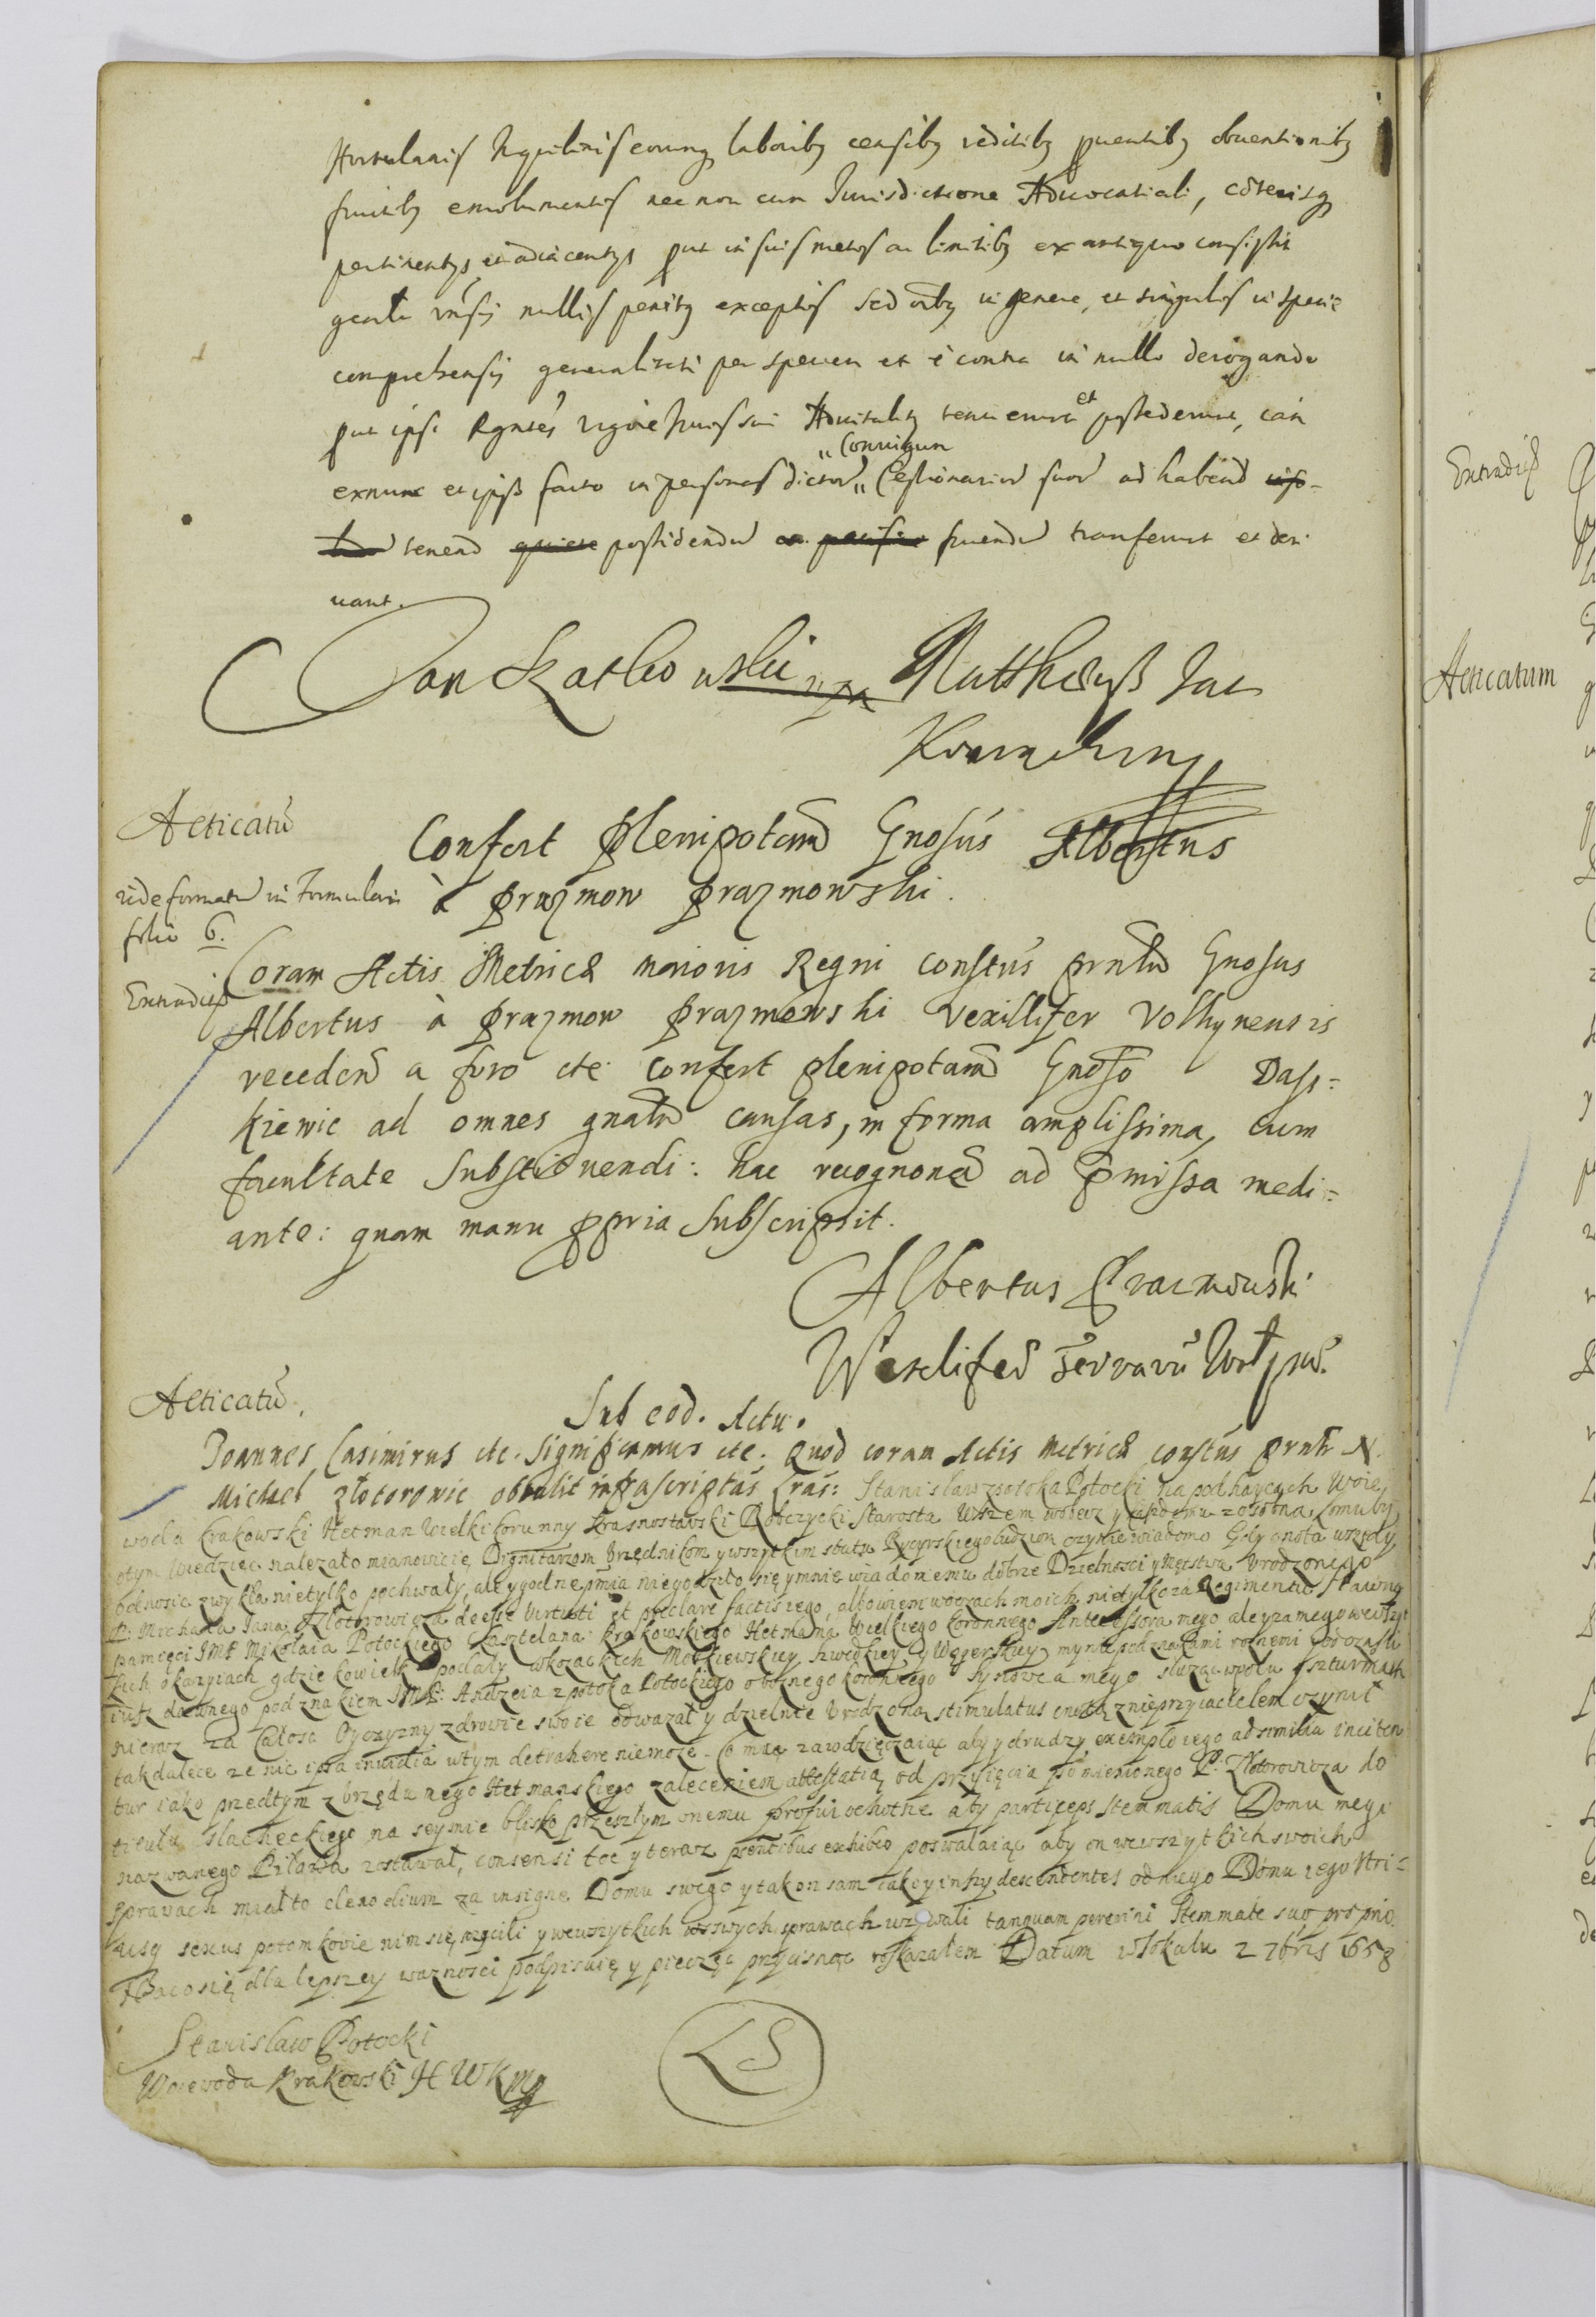 Hortulanis Inquilinis eorumq laboribq censibq reditibq puentibq obuentionibq
fruitibq emolumentis nec non cum Jurisdictione Aduocatiali, coterisq
pertinentys et adiacentys put in suis metis ac limitibq ex antiquo consistit
gnalr vnsis nullis penitq exceptis sed oibq in genere, et singulis in specie
comprehensis generalitati per speciem et è contra in nullo derogando
put ipsi Rgntes vigore Juris sui Aduitalitq tenuerunt et possederunt, eam
"Coniugum
exnunc et ipso facto in personas dictor" Cessionarior suor ad habend
tenend quiete possidendu ac pacifice fruendu transferunt et deri
uant.
Jan Szatkowski mpa Mattheuß Jac
Aeticatu
Confert plenipotem Gnosus Albertus
à Prazmow Prazmowski.
vide formatu in Formulari
folio 6.
Coram Actis Metrice maioris Regni constus prntr Gnosus
Extraditu
Albertus à Prazmow Prazmowski Vexillifer Volhynensis
recedend a foro etc. Confert plenipotam Gnoso Dass=
kiewic ad omnes gnatr causas, in forma amplissima, cum
facultate substituendi: hac recognone ad pmissa medi=
ante: quam manu ppria subscripsit.
Albertus Pracmowski
Wexelifer Terraru Wołyn.
Aeticatu.
Sub eod. Actu.
Joannes Casimirus etc. Significamus etc. Quod coram Actis Metrice constus prntr N.
Michael Złotorowic obtulit infrascriptas Lras: Stanisław zpotoka Potocki na podhaycach Woie
woda Krakowski Hetman Wielki Korunny Krasnostawski Robczycki Starosta Wszem wobecz y każdemu zosobna komuby
otym wiedziec nalezało mianowicie Dignitarzom Vrzędnikom y wszytkim statu Rycyrskiego ludziom czynie wiadomo Gdy cnota wszędy
odnosic zwykła nietylko pochwały, ale y godne pmia niegodziło się y mnie wiadomemu dobrze Dzielnosci y Męstwa Vrodzonego
P: Michała Jana Złotorowicza deesse virtuti et preclare factis iego, albowiem woczach moich nietylko za Regimentu Sławny
pamięci IMP Mikołaia Potockiego Kasztelana Krakowskiego Hetmana Wielkiego Koronnego Antecessora mego ale y za mego wewszyt
kich okazyiach gdzie kowiek podały wkozackich Moskiewskiey, Szwedzkiey, y Węgerskiey pod znakami roznemi podczasu
iusz dawnego pod znakiem IMP: Andrzeia z potoka Potockiego oboznego koronnego Synowca mego słuząc wpolu y szturmach
nieraz za Całosc Oyczyzny zdrowie swoie odwazał y dzielnie Vrodzoną stimulatus cnotą znieprzyiacielem czynił
takdalece ze nic ipsa inuidia wtym detrahere niemoze. Co mią zawdzięczaiąc aby y drudzy exemplo iego ad similia inciten
tur iako przedtym z vrzędu mego Hetmanskiego zaleceniem attestatią od przyięcia pomienionego P. Złotorowicza do
titułu slacheckiego na seymie blisko przeszłym onemu profui ochotnie aby particeps stemmatis Domu mego
nazwanego Piława zostawał, consensi toc y teraz prentibus exhibeo poswalaiąc aby on wewszytkich swoich
sprawach miał to clenodium za insigne Domu swego y tak on sam iako y inszy descendentes od niego Domu iego Vtri=
usq sexus potomkowie nim się szczcili y wewszytkich wswych sprawach uzywali tanquam pereñni Stemmate suo proprio.
Naco się dla lepszey waznosci podpisuię y pieczęc przycisnąc roskazałem Datum wTokalu 2 7bris 1658
Stanislaw Potocki
Woiewoda Krakowski H W K mp
LS
Extraditu
Aeticatum